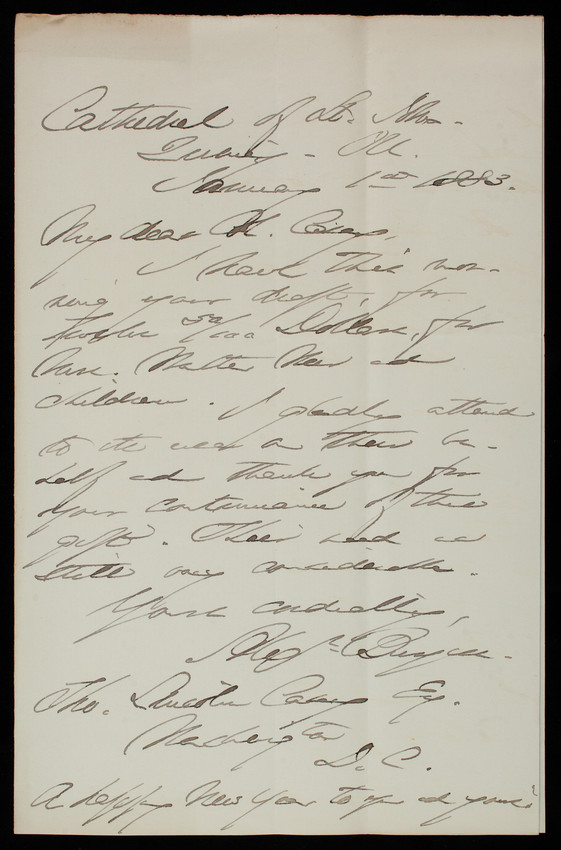 Cathedral of St. John.
Quincy - Ill.
January 1st 1883.
My dear Col. Casey,
I have this mor-
ning your draft, for
twelve 50/100 Dollars, for
Mrs. Walter and
children. I gladly attend
to its use on their be-
half and thank you for
your continuance of this
gift. Their need is
still very considerable.
Yours cordially,
Alexr. Burgess.
Tho. Lincoln Casey Esq.
Washington
D. C.
A happy New Year to you and yours